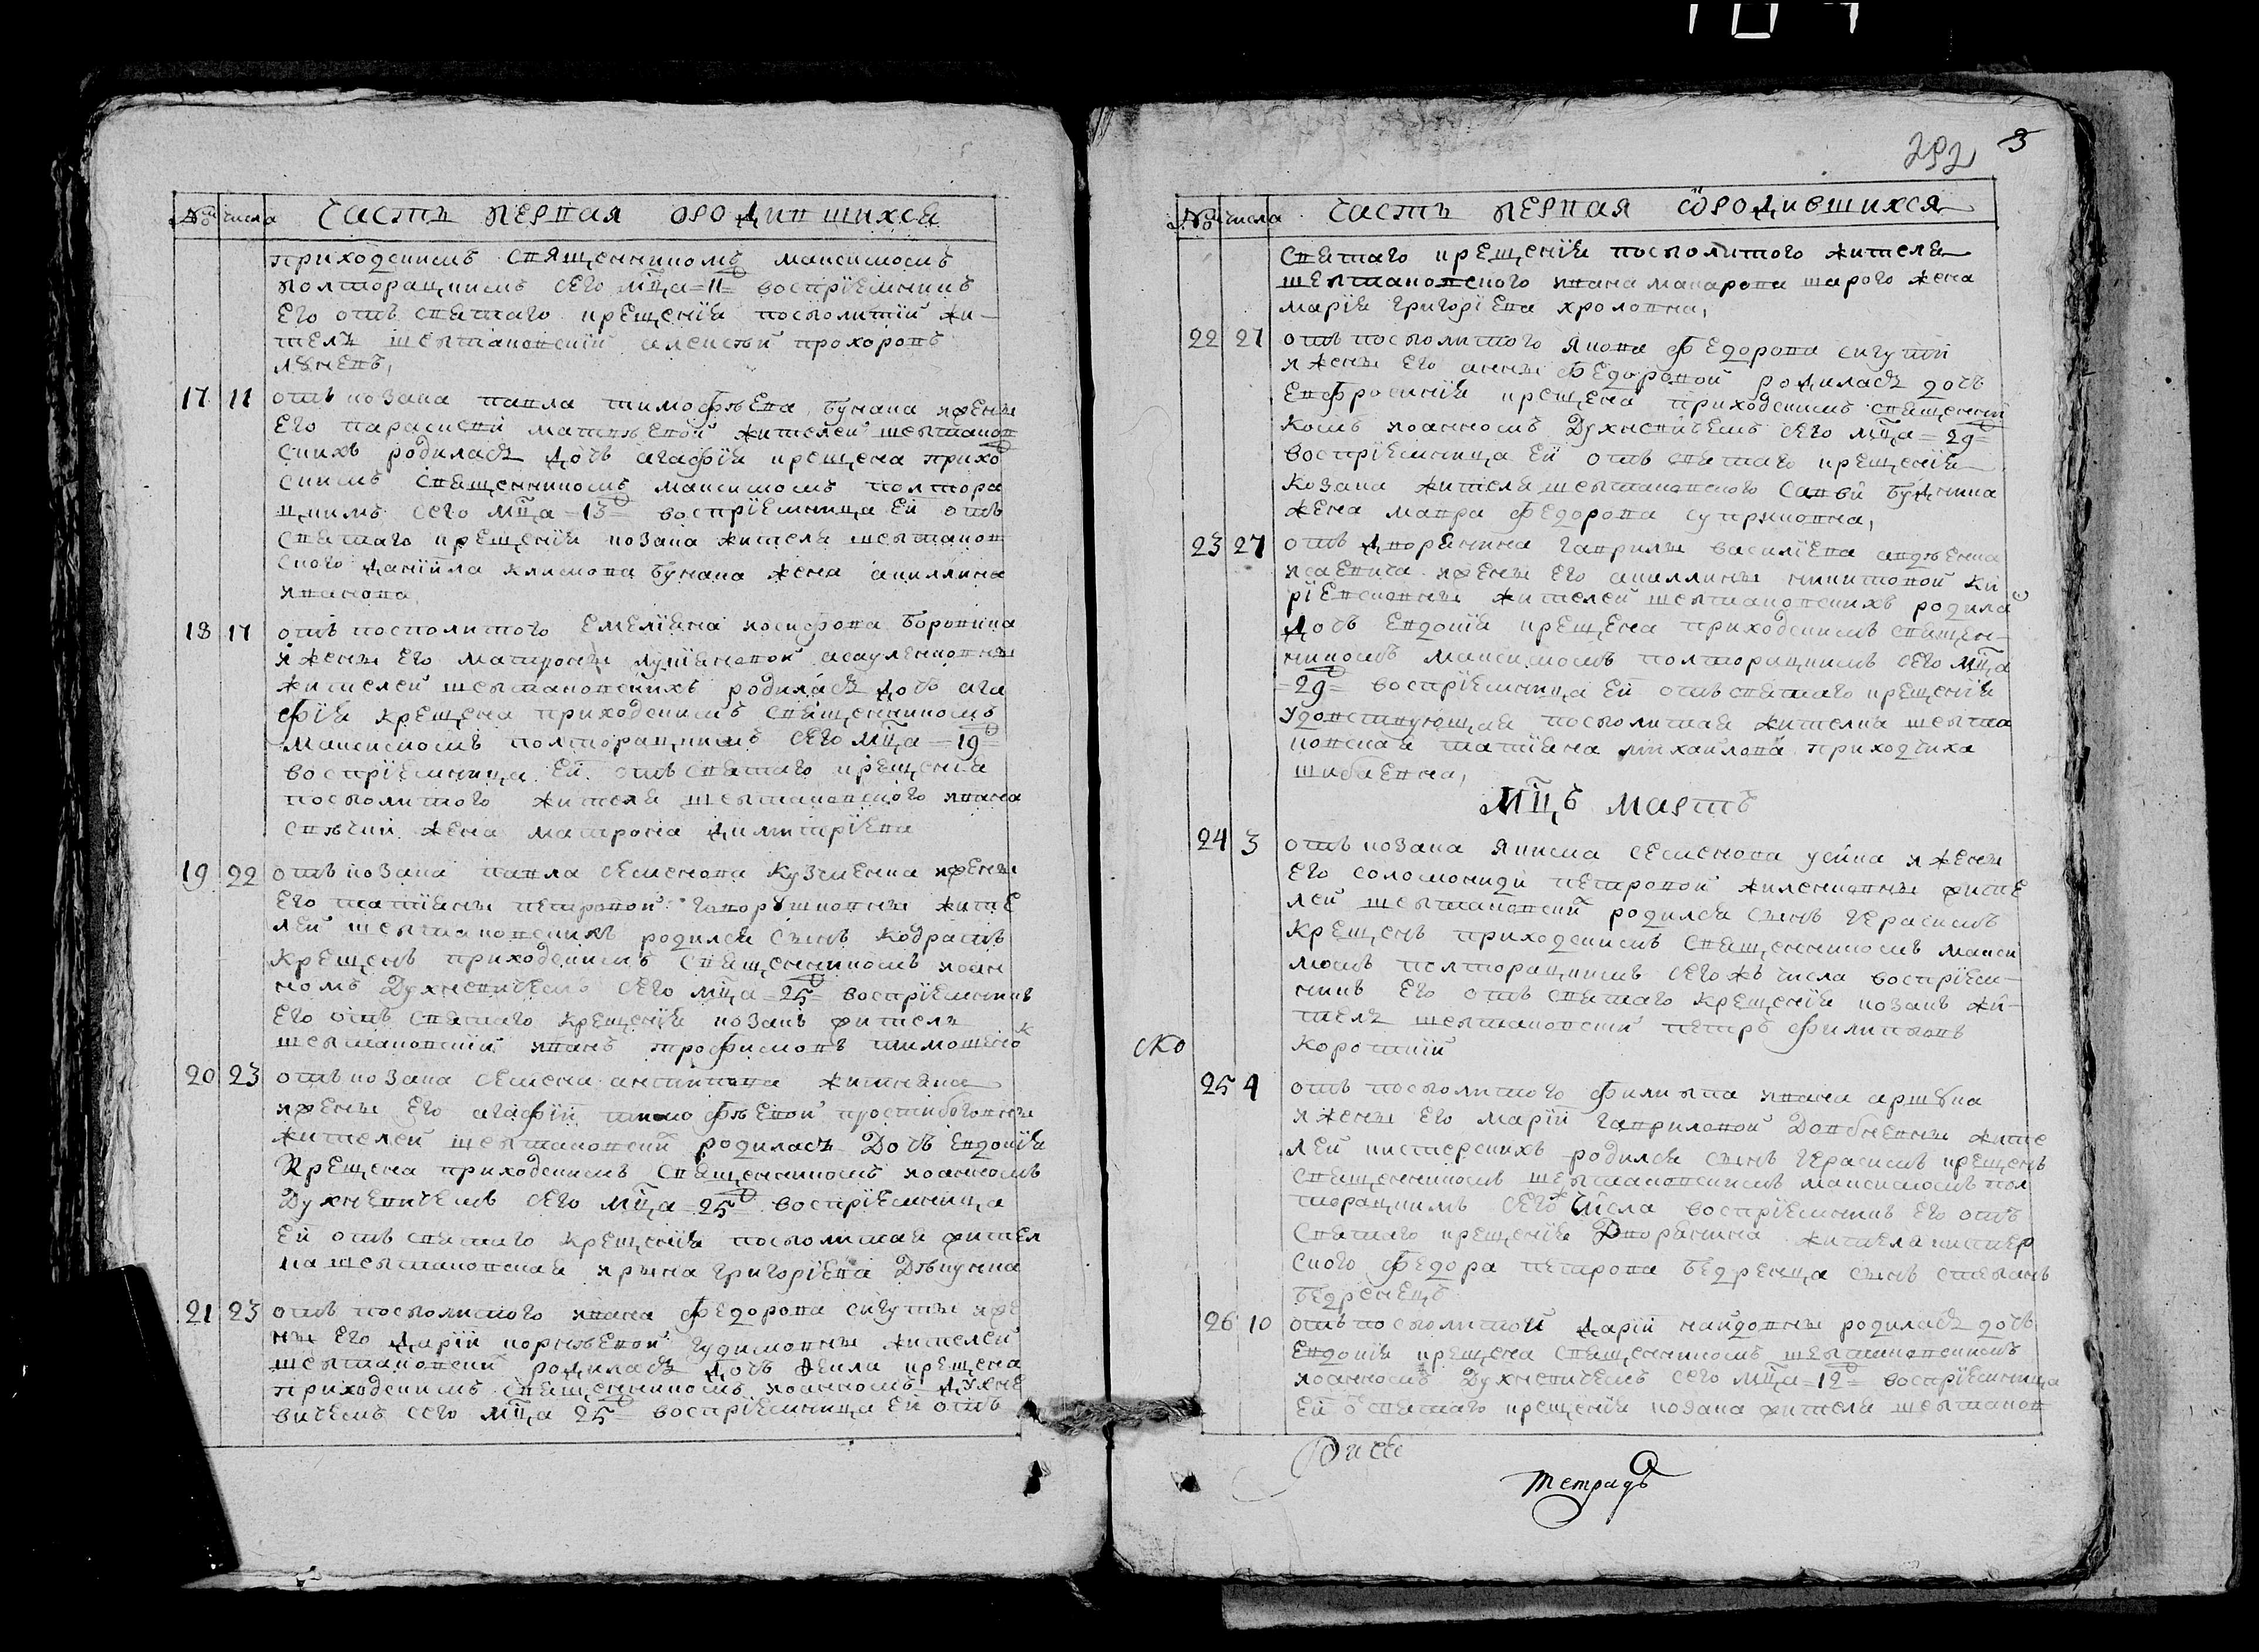 № числа Часть первая ѡродившихся
приходскимъ священникомъ максимомъ
полторацкимъ сего мца 11 воспріемникъ
его отъ святаго крещенія посполитій жи-
тель шептаковскій алексѣй прохоровъ
17 11 отъ козака павла тимофѣева бунака и жены
его параскеи матвѣевой жителей шептаков
скихъ родилась дочь агафія крещена прихо
скимъ священникомъ максимомъ полтора
цкимъ сего мца 13 воспріемница ей отъ
святаго крещенія козака жителя шептаков
ского даніила климова бунака жена акиллина
иванова
18 17 отъ посполитого емеліана иосифова
и жены его матроны лукіановой асауленковны
жителей шептаковскихъ родилась дочь ага
фія крещена приходскимъ священникомъ
максимомъ полторацкимъ сего мца 19
воспріемница ей отъ святаго крещенія
посполитого жителя шептаковского ивана
жена матрона димитріева
19 22 отъ козака павла семенова кузменка и жены
его татіаны петровой жите
лей шептаковскихъ родился сынъ кодратъ
крещенъ приходскимъ священникомъ иоан
номъ духневичемъ сего мца 25 воспріемникъ
его отъ святаго крещенія козакъ житель
шептаковскій иванъ трофимовъ тимошенко
20 23 отъ козака семена антипова житняка
и жены его агафіи тимофѣевой
жителей шептаковскй родилась дочь евдокія
крещена приходскимъ священникомъ иоанномъ
духневичемъ сего мца 25 воспріемница
ей отъ святаго крещенія посполитая жител
ка шептаковская ирина григоріева
21 23 отъ посполитого ивана федорова сигуты и же
ны его даріи корнѣевой гудимовны жителей
шептаковскй родилась дочь крещена
приходскимъ священникомъ иоанномъ духне
вичемъ сего мца 25 воспріемница ей отъ
292 3
№ числа Часть первая ѡродившихся
святаго крещенія посполитого жителя
шептаковского ивана макарова шарого жена
марія григоріева хроловна,
22 27 отъ посполитого якова федорова сигути
и жены его анны федоровой родилась дочь
евфросинія крещена приходскимъ священни
комъ иоанномъ духневичемъ сего мца 29
воспріемница ей отъ святаго крещенія
козака жителя шептаковского саввы
жена мавра федорова супруновна,
23 27 отъ дворянина гаврилы василіева
исаевича и жены его акиллины никитовой ки
ріевсковны жителей шептаковскихъ родилас
дочь евдокія крещена приходскимъ священ-
никомъ максимомъ полторацкимъ сего мца
29 воспріемница ей отъ святаго крещенія
удовствующая посполитая жителка шепта
ковская татіана михаилова приходчиха
мцъ мартъ
24 3 отъ козака якима семенова усика и жены
его соломониди петровой жите
лей шептаковскй родился сынъ герасимъ
крещенъ приходскимъ священникомъ макси
момъ полторацкимъ сегожъ числа воспріем-
никъ его отъ святаго крещенія козакъ жи-
тель шептаковскй петръ филиповъ
короткій
ско
25 4 отъ посполитого филипа ивана аршука
и жены его маріи гавриловой довбневны жите
лей кистерскихъ родился сынъ герасимъ крещенъ
священникомъ шептаковскимъ максимомъ пол
торацкимъ сего числа воспріемникъ его отъ
святаго крещенія дворянина жителя кистер
ского федора петрова бедренца сынъ стефанъ
бедренецъ
26 10 отъ посполитой даріи найдовны родилась дочь
евдокія крещена священникомъ шептаковскимъ
иоанномъ духневичемъ сего мца 12 воспріемница
ей ѿ святаго крещенія козака жителя шептаков
тетрадъ